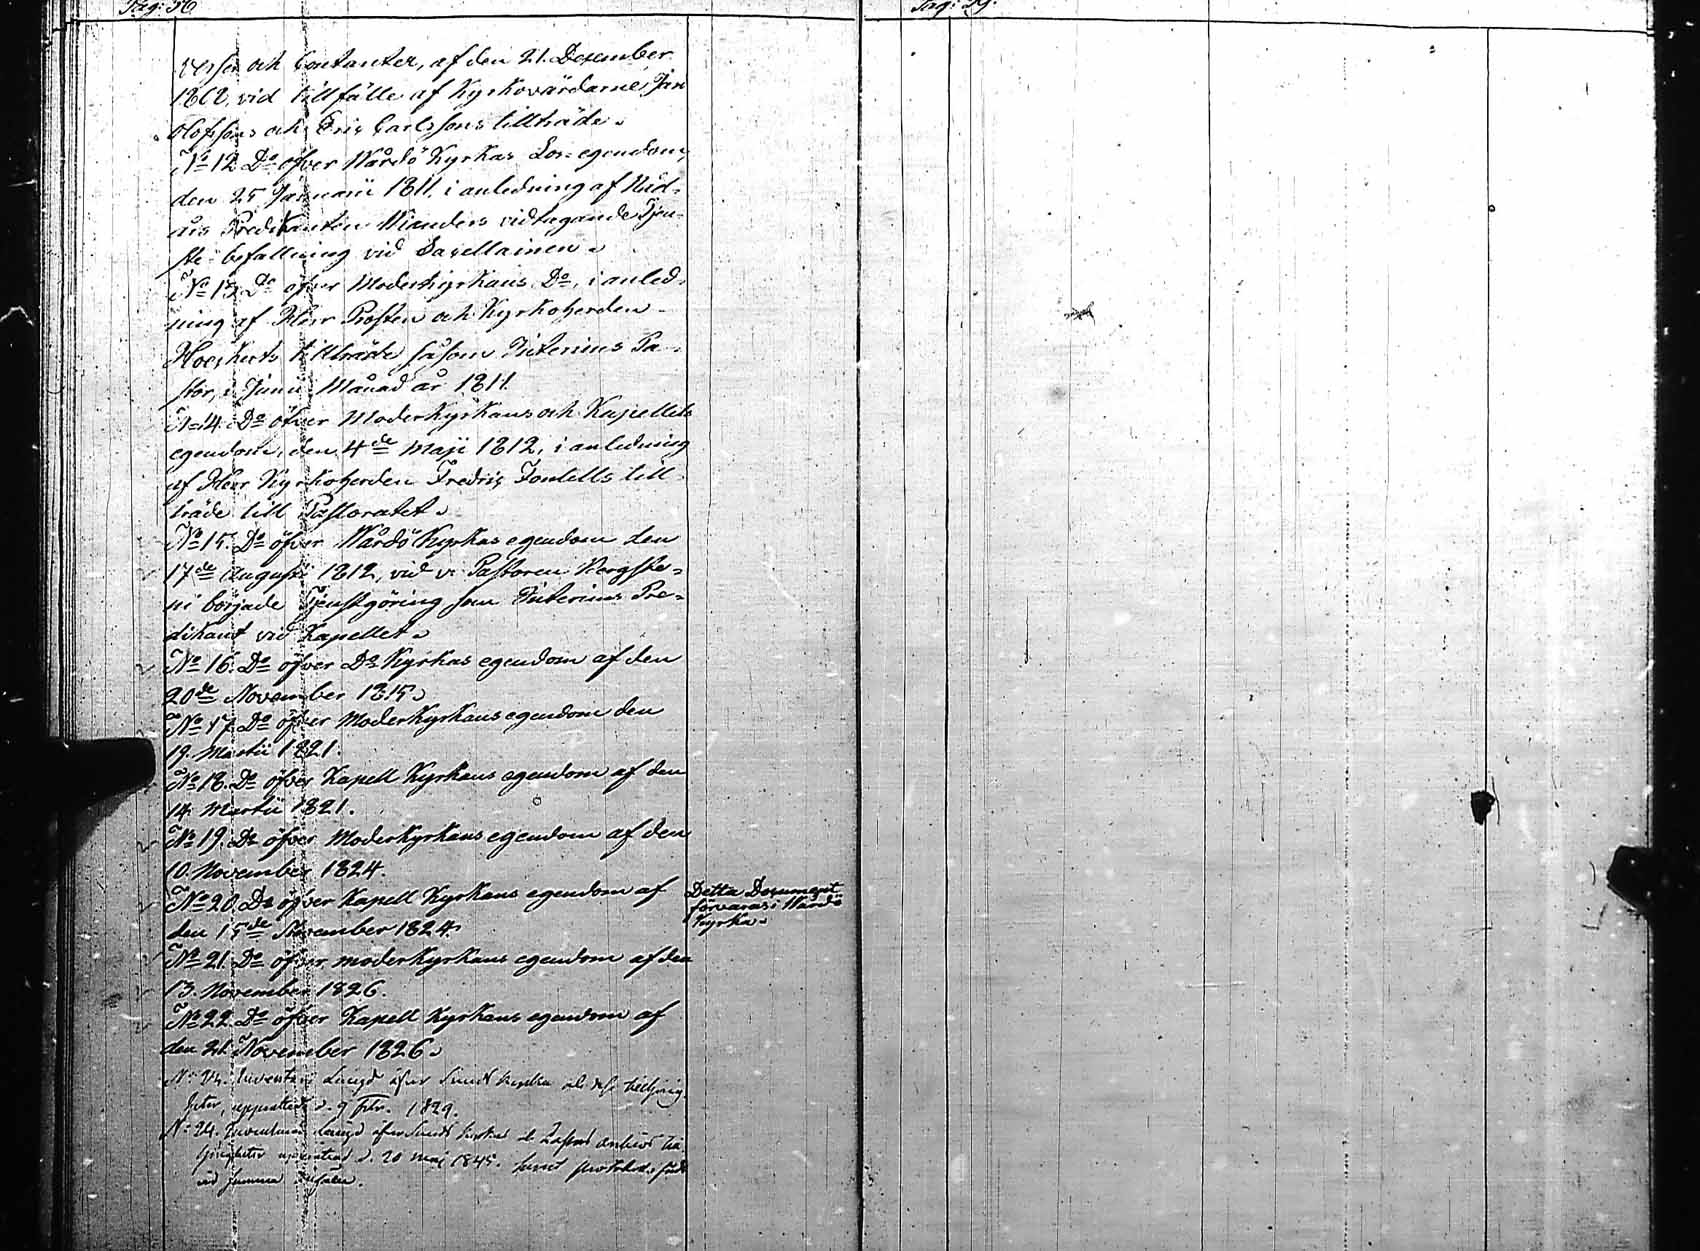 Pag: 56.
Pag: 59.
och Contanter, af den 21. December
1808, vid tillfälle af Kyrkovärdarne Jan
Olofssons och Eric Carlssons tillträde.
No 12. Do öfver Wårdö Kyrkas Lös-egendom,
den 25 Januarii 1811. i anledning af Nåd-
års Predikanten vidtagande Tjen-
ste-befattning vid Capellainen.
No 13. Do öfver Moderkyrkans Do, i anled-
ning af Herr Prosten och Kyrkoherden
tillträde såsom Interims Pa-
stor, i Junii Månad år 1811.
No 14. Do öfver Moderkyrkans och Kapellets
egendom, den 4de Maji 1812, i anledning
af Herr Kyrkoherden Fredric Fontells till-
träde till Pastoratet.
No 15. Do öfver Wårdö Kyrkas egendom den
17de Augusti 1812, vid v. Pastoren Bergste-
ni började Tjenstgöring som Interims Pre-
dikant vid Kapellet.
No 16. Do öfver Do Kyrkas egendom af den
20de November 1815.
No 17. Do öfver Moderkyrkans egendom den
19. Martii 1821.
No 18. Do öfver Kapell Kyrkans egendom af den
14. Martii 1821.
No 19. Do öfver Moderkyrkans egendom af den
10. November 1824.
No 20. Do öfver Kapell Kyrkans egendom af
den 15de November 1824.
Detta Document
förvaras i Wårdö
Kyrka.
No 21. Do öfver moderkyrkans egendom af den
13. November 1826.
No 22. Do öfver Kapell Kyrkans egendom af
den 21. November 1826.
Längd öfver Sunds kyrka
upprättad d. 9 1829.
No 24. Inventarii Längd öfver Sunds kyrkas
d. 20 maj 1845.